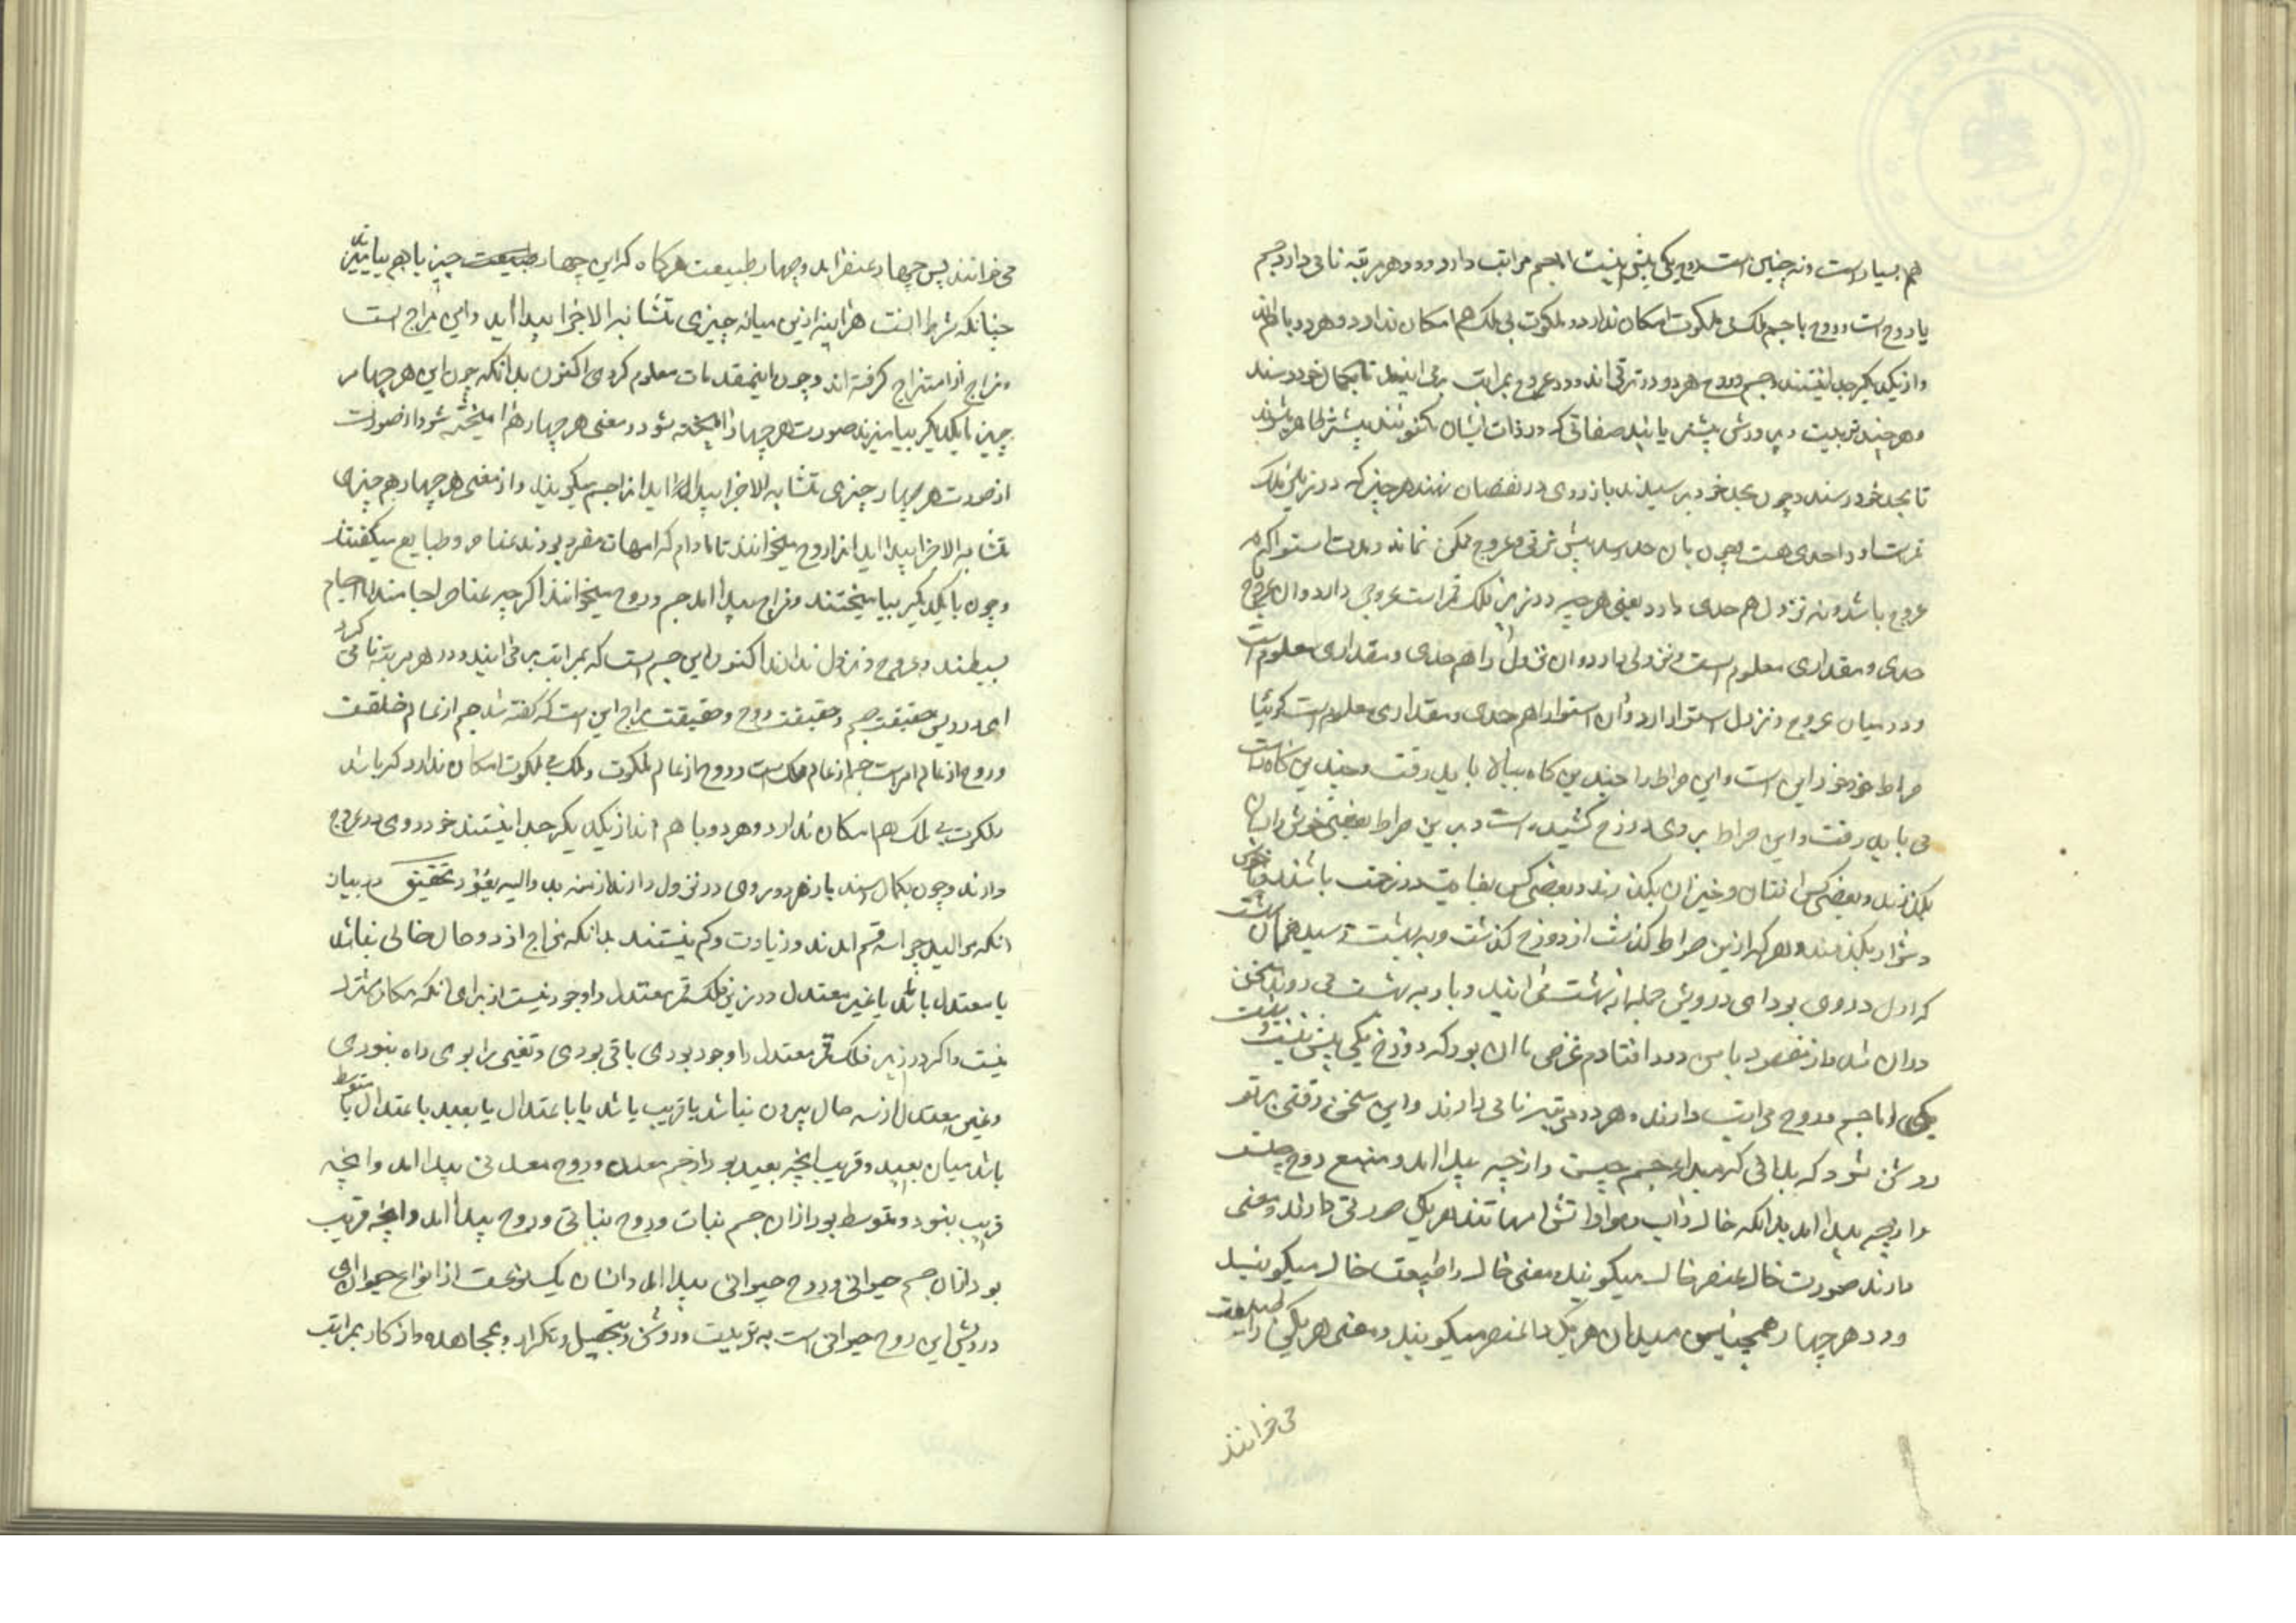 هم بسیار است و نه چنین است روح یکی بیش نیست اما جسم مراتب دارد و در هر مرتبه نامی دارد جسم
با روح است و روح با جسم ملک بی ملکوت امکان ندارد و ملکوت بی ملک هم امکان ندارد و هر دو با هم‌اند
و از یکدیگر جدا نیستند و جسم و روح هر دو در ترقی‌اند و در عروج بمراتب برمی‌آیند تا بکمال خود رسند
و هر چند تربیت و پرورش بیشتر یابند صفاتی که در ذات ایشان مکنونند بیشتر ظاهر شوند
تا بحد خود رسند و چون بحد خود برسیدند باز روی در نقصان نهند هر چیز که در زیر فلک
قمرست او را حدی هست چون بان حد رسد بیش ترقی و عروج ممکن نماند و مدت استوا که نه
عروج باشد و نه نزول هم حدی دارد یعنی هر چیز در زیر فلک قمر است عروجی دارد و ان عروج را
حدی و مقداری معلوم است و نزولی دارد و ان نزول را هم حدی و مقداری معلوم است
و در میان عروج و نزول استوا دارد و آن استوا را هم حدی و مقداری معلوم است گوئیا
صراط خود خود این است و این صراط را چندین گاه ببالا باید رفت و چندین گاه راست
می باید رفت و این صراط بر روی دوزخ کشیده است و برین صراط بعضی خوش و آسان
بگذرند و بعضی کس افتان و خیزان بگذرند و بعضی کس بغایت در زحمت باشند و
دشوار بگذرند و هر که ازین صراط گذشت از دوزخ گذشت و به بهشت رسید همان بهشت
که اول در وی بود ای درویش جمله از بهشت می‌آیند و باز به بهشت می روند سخن
دراز شد و از مقصود باپس دور افتادم غرض ما ان بود که روح یکی بیش نیست
یکی اما جسم و روح مراتب دارند و هر دو در هر مرتبه نامی دارند و این سخن وقتی بر تو
روشن شود که بدانی که مبداء جسم چیست و از چه پیدا امد و منبع روح چیست
و از چه پیدا امد بدانکه خاک و آب و هوا و اتش امهاتند هر یک صورتی دارند و معنی
دارند صورت خاک را عنصر خاک میگویند و معنی خاک را طبیعت خاک میگویند
و در هر چهار همچنین میدان هر یک را عنصر میگویند و معنی هر یکی را طبیعت
می خوانند
می خوانند پس چهار عنصر آمد و چهار طبیعت هرگاه که این چهار چیز با هم بیامیزند
چنانکه شرط انست هر آینه ازین میانه چیزی متشابه الاجزا پیدا آید و این مزاج است
و مزاج از امتزاج گرفته اند و چون این مقدمات معلوم کردی اکنون بدانکه چون این هر چهار
چیز با یکدیگر بیامیزند صورت هر چهار آمیخته شود و معنی هر چهار هم آمیخته شود از صورت
از صورت هر چهار چیزی متشابه الاجزا پیدا آید انرا جسم میگویند و از معنی هر چهار هم چیزی
متشابه الاجزا پیدا آید انرا روح میخوانند تا مادام که امهات مفرد بودند عناصر و طبایع میگفتند
و چون با یکدیگر بیامیختند و مزاج پیدا امد جسم و روح میخوانند اگر چه عناصر اجسامند اما اجسام
بسیطند و عروج و نزول ندارند اکنون این جسم است که بمراتب برمی‌آیند و در هر مرتبه نامی گیرد
ای درویش حقیقت جسم و حقیقت روح و حقیقت مزاج این است که گفته شد جسم از عالم خلقست
و روح از عالم امرست جسم از عالم ملک است و روح از عالم ملکوت و ملک بی ملکوت امکان ندارد که باشد
ملکوت بی ملک هم امکان ندارد و هر دو با هم اند از یکدیگر جدا نیستند خود روی در عروج
دارند و چون بکمال رسند باز هر دو روی در نزول دارند از منه بدء و الیه یعود تحقیق در بیان
انکه موالید چرا سه قسم امدند و زیادت و کم نیستند بدانکه مزاج از دو حال خالی نباشد
یا معتدل باشد یا غیر معتدل در زیر فلک قمر معتدل را وجود نیست از برای انکه مکان معتدل
نیست و اگر در زیر فلک قمر معتدل را وجود بودی باقی بودی و تغیر را بوی راه نبودی
و غیر معتدل از سه حال بیرون نباشد یا قریب باشد باعتدال یا بعید باعتدال یا متوسط
باشد میان بعید و قریب انچه بعید بود از جسم معدن و روح معدنی پیدا امد و انچه
قریب نبود و متوسط بود ازان جسم نبات و روح نباتی پیدا امد و انچه قریب
بود ازان جسم حیوانی و روح حیوانی پیدا امد و انسان یک نوعست از انواع حیوان ای
درویش این روح حیوانی است به تربیت و روش و تحصیل و تکرار و بمجاهده و اذکار بمراتب